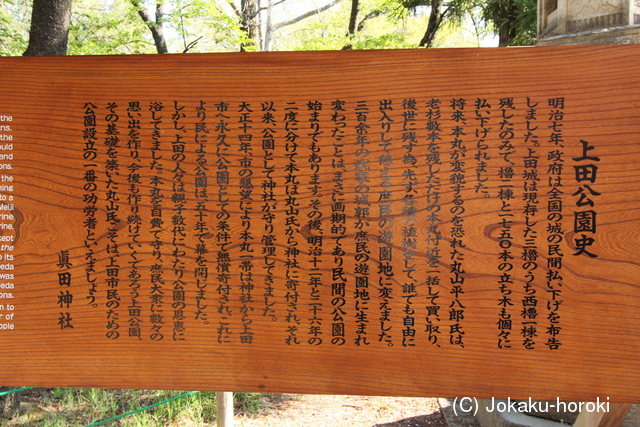 上田公園史
明治七年、政府は全国の城の民間払い下げを布告
しました。上田城は現存した三櫓のうち西櫓一棟を
残したのみで、櫓一棟と二千五〇本の立ち木も個々に
払い下げられました。
将来、本丸が変貌するのを恐れた丸山平八郎氏は、
老杉数本を残した本丸付近を一括して買い取り、
後世に残す為、先ず各種の植樹をして、誰でも自由に
出入りして憩える庶民の遊園地に変えました。
三百余年の
の城郭が庶民の遊園地に生まれ
変わったことは、まさに画期的であり民間の公園の
始まりでもあります。その後、明治十二年と二十六年の
二度に分けて本丸は丸山氏から神社に寄付され、それ
以来、公園として神社が守り管理してきました。
大正十四年、市の懇望により本丸一帯は神社から上田
市へ永久に公園としての条件で無償寄付され、これに
より民による公園は五十年で幕を閉じました。
しかし、上田の人々は親子数代にわたり公園の恩恵に
浴してきました。本丸を自費で守り、庶民大衆に数々の
思い出を作り、今後も作り続けていくであろう上田公園、
その基礎を築いた丸山氏こそは、上田市民のための
公園設立の一番の功労者といえましょう。
眞田神社
the
ns.
the
uld
and
ons.
the
ning
to a
Meiji
rine
rine.
kept
the
its
eda
was
ons.
n to
r of
ople
(C) Jokaku-horoki